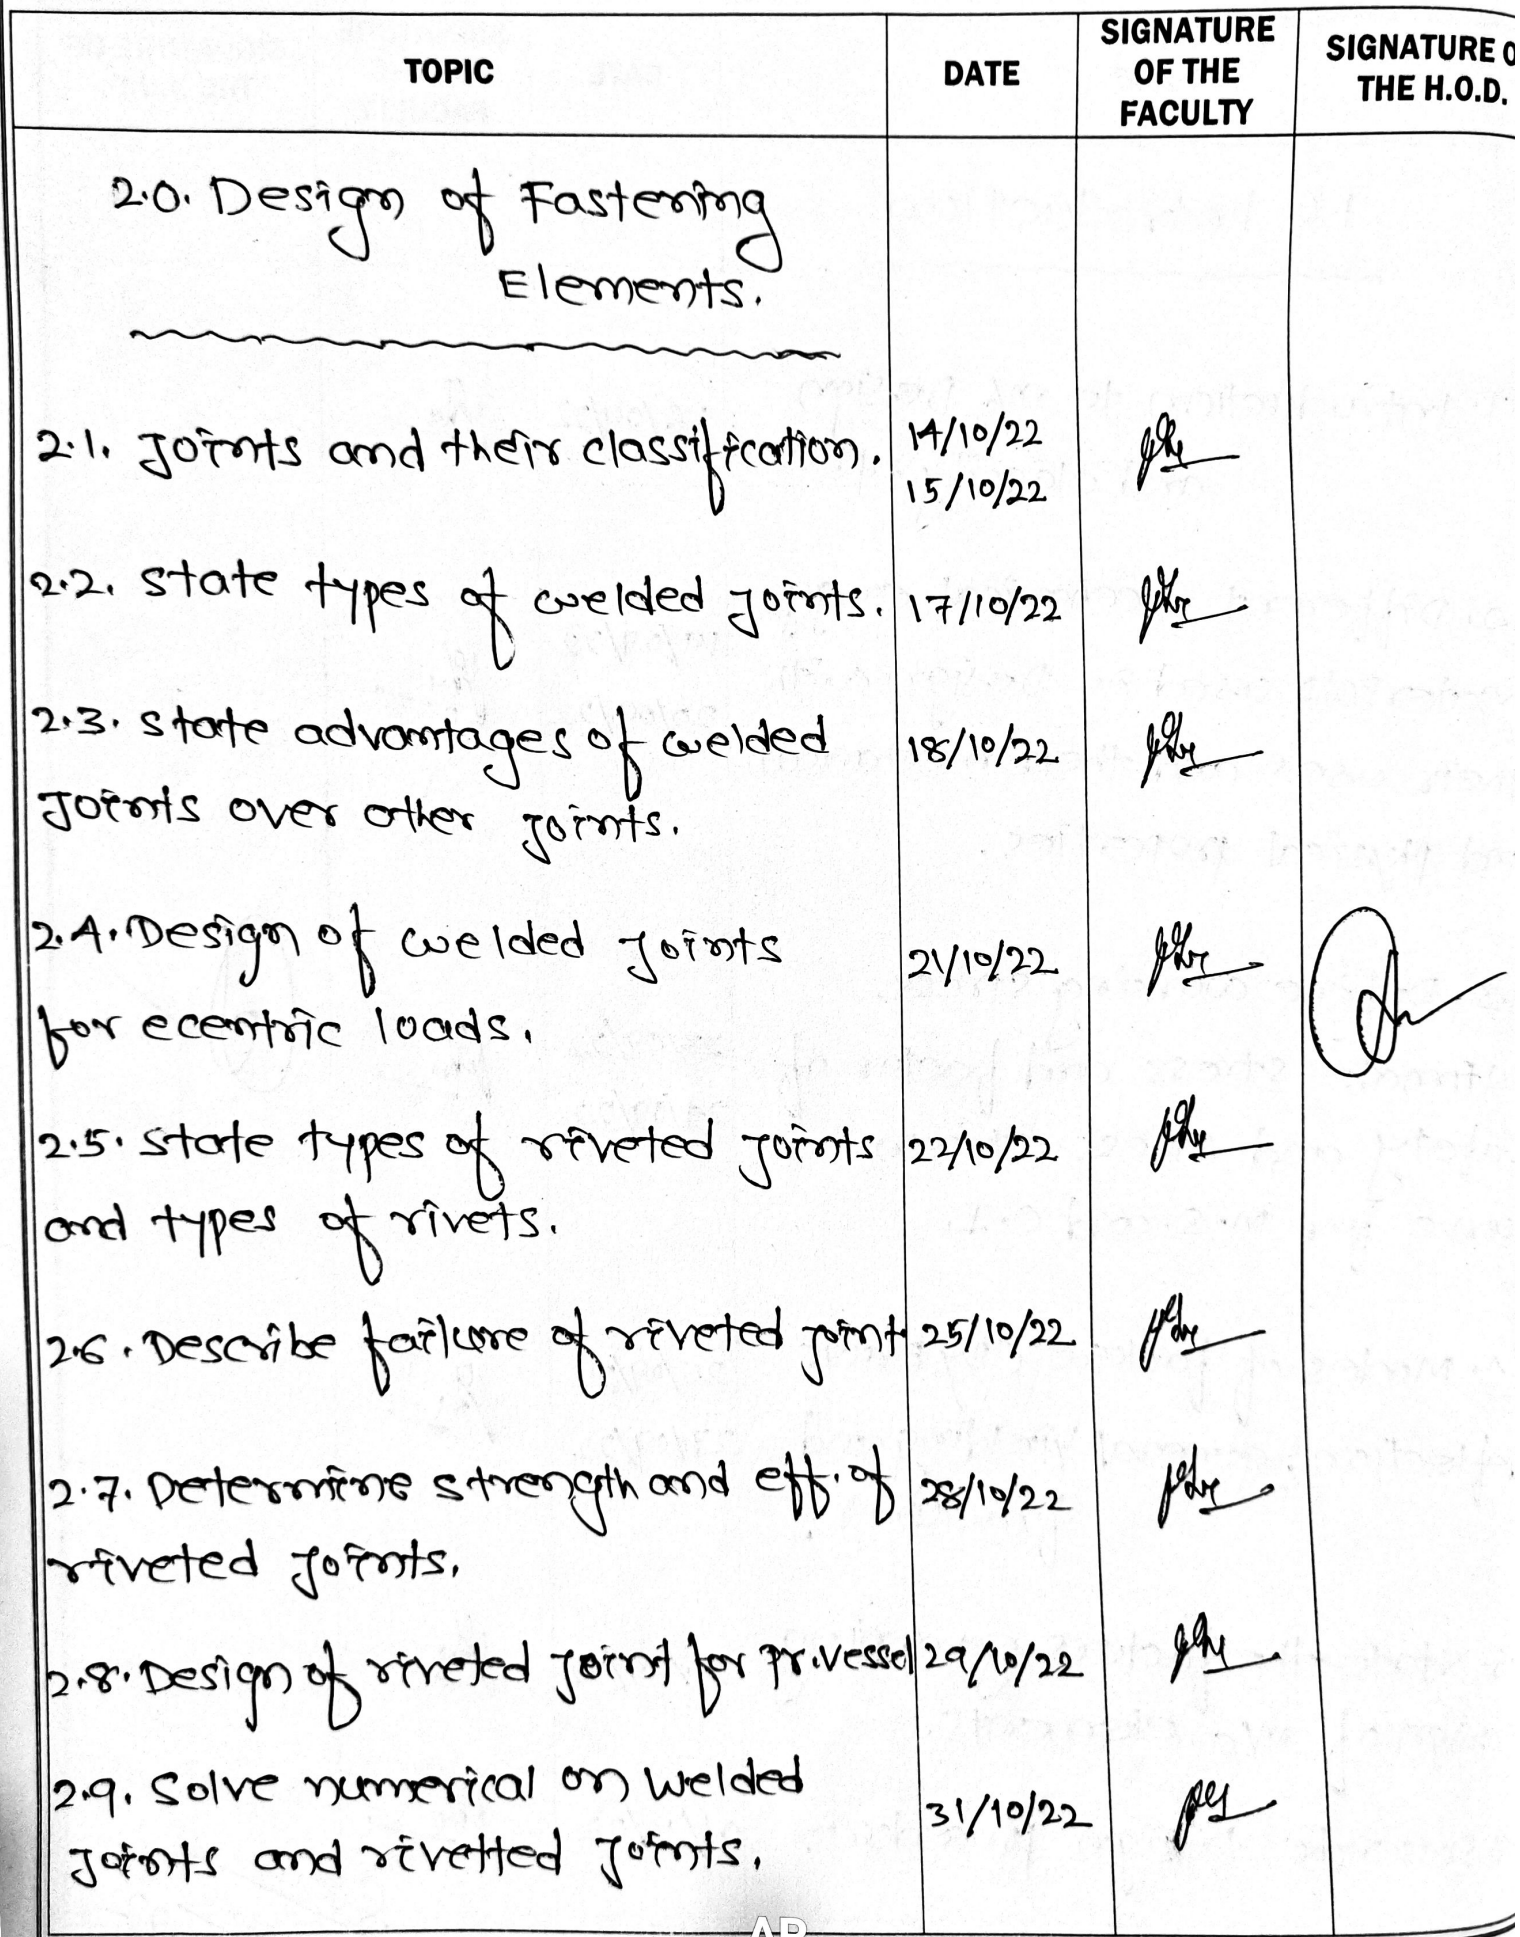 TOPIC
DATE
SIGNATURE
OF THE
FACULTY
SIGNATURE O
THE H.O.D.
2.0. Design of Fastening
Elements.
2.1. Joints and their classification.
14/10/22
15/10/22
2.2. State types of welded joints.
17/10/22
2.3. State advantages of welded
Joints over other joints.
18/10/22
2.4. Design of welded joints
for ecentric loads.
21/10/22
2.5. State types of riveted joints
and types of rivets.
22/10/22
2.6. Describe failure of riveted joint
25/10/22
2.7. Determine strength and eff. of
riveted joints.
28/10/22
2.8. Design of riveted joint for Pr. vessel
29/10/22
2.9. Solve numerical on welded
joints and rivetted joints.
31/10/22
AR